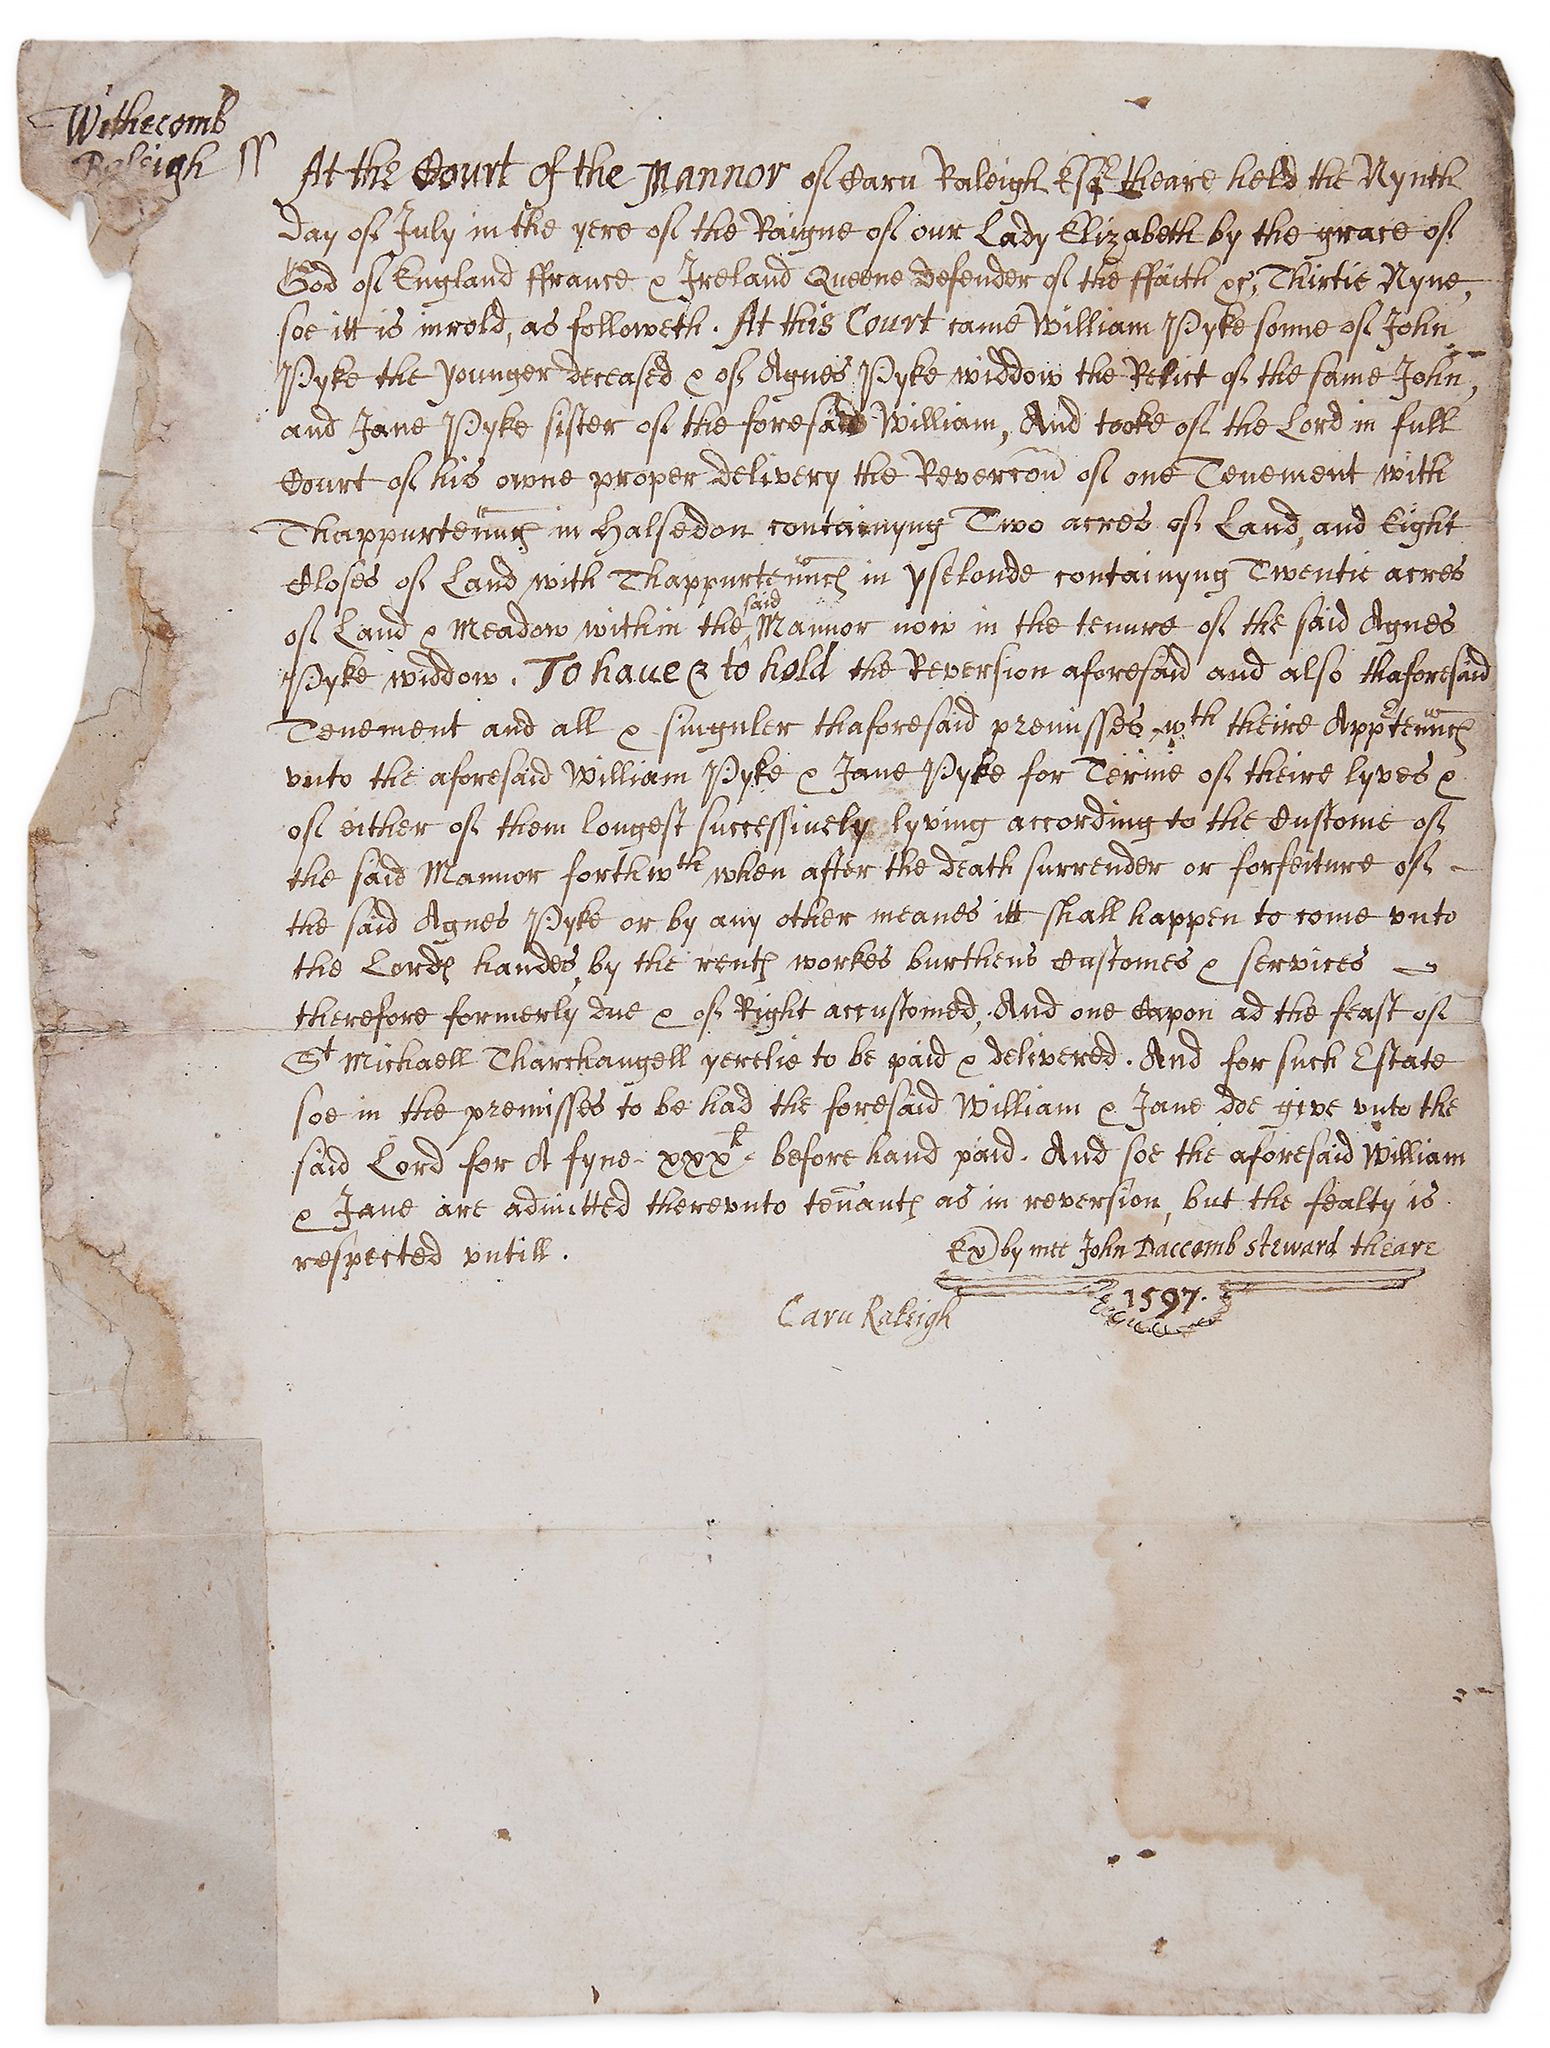 Withecomb
Raleigh ss
At the Court of the Mannor of Caru Raleigh Esqr theare held the Nynth
day of July in the yere of the Raigne of our Lady Elizabeth by the grace of
God of England ffrance & Ireland Queene defender of the ffaith &c, Thirtie Nyne,
soe itt is inrold, as followeth. At this Court came William Pyke sonne of John
Pyke the younger deceased & of Agnes Pyke widdow the Relict of the same John,
and Jane Pyke sister of the foresaid William, And tooke of the Lord in full
Court of his owne proper delivery the Revercon of one Tenement with
Thappurtennces in Halsedon containyng Two acres of Land, and Eight
Closes of Land with Thappurtennces in Yselonde containyng Twentie acres
of Land & Meadow within the said Mannor now in the tenure of the said Agnes
Pyke widdow. To haue & to hold the Reversion aforesaid and also thaforesaid
Tenement and all & singuler thaforesaid premisses wth theire Apptennces
vnto the aforesaid William Pyke & Jane Pyke for Terme of theire lyves &
of either of them longest successiuely lyving according to the Custome of
the said Mannor forthwth when after the death surrender or forfeiture of
the said Agnes Pyke or by any other meanes itt shall happen to come vnto
the Lordes handes, by the rentes workes burthens Customes & services
therefore formerly due & of Right accustomed, And one Capon ad the feast of
St Michaell Tharchangell yerelie to be paid & delivered. And for such Estate
soe in the premisses to be had the foresaid William & Jane doe give vnto the
said Lord for A fyne xxx before hand paid. And soe the aforesaid William
& Jane are admitted therevnto tennantes as in reversion, but the fealty is
respected vntill.
Ex by mee John Daccomb steward theare
1597.
Caru Raleigh